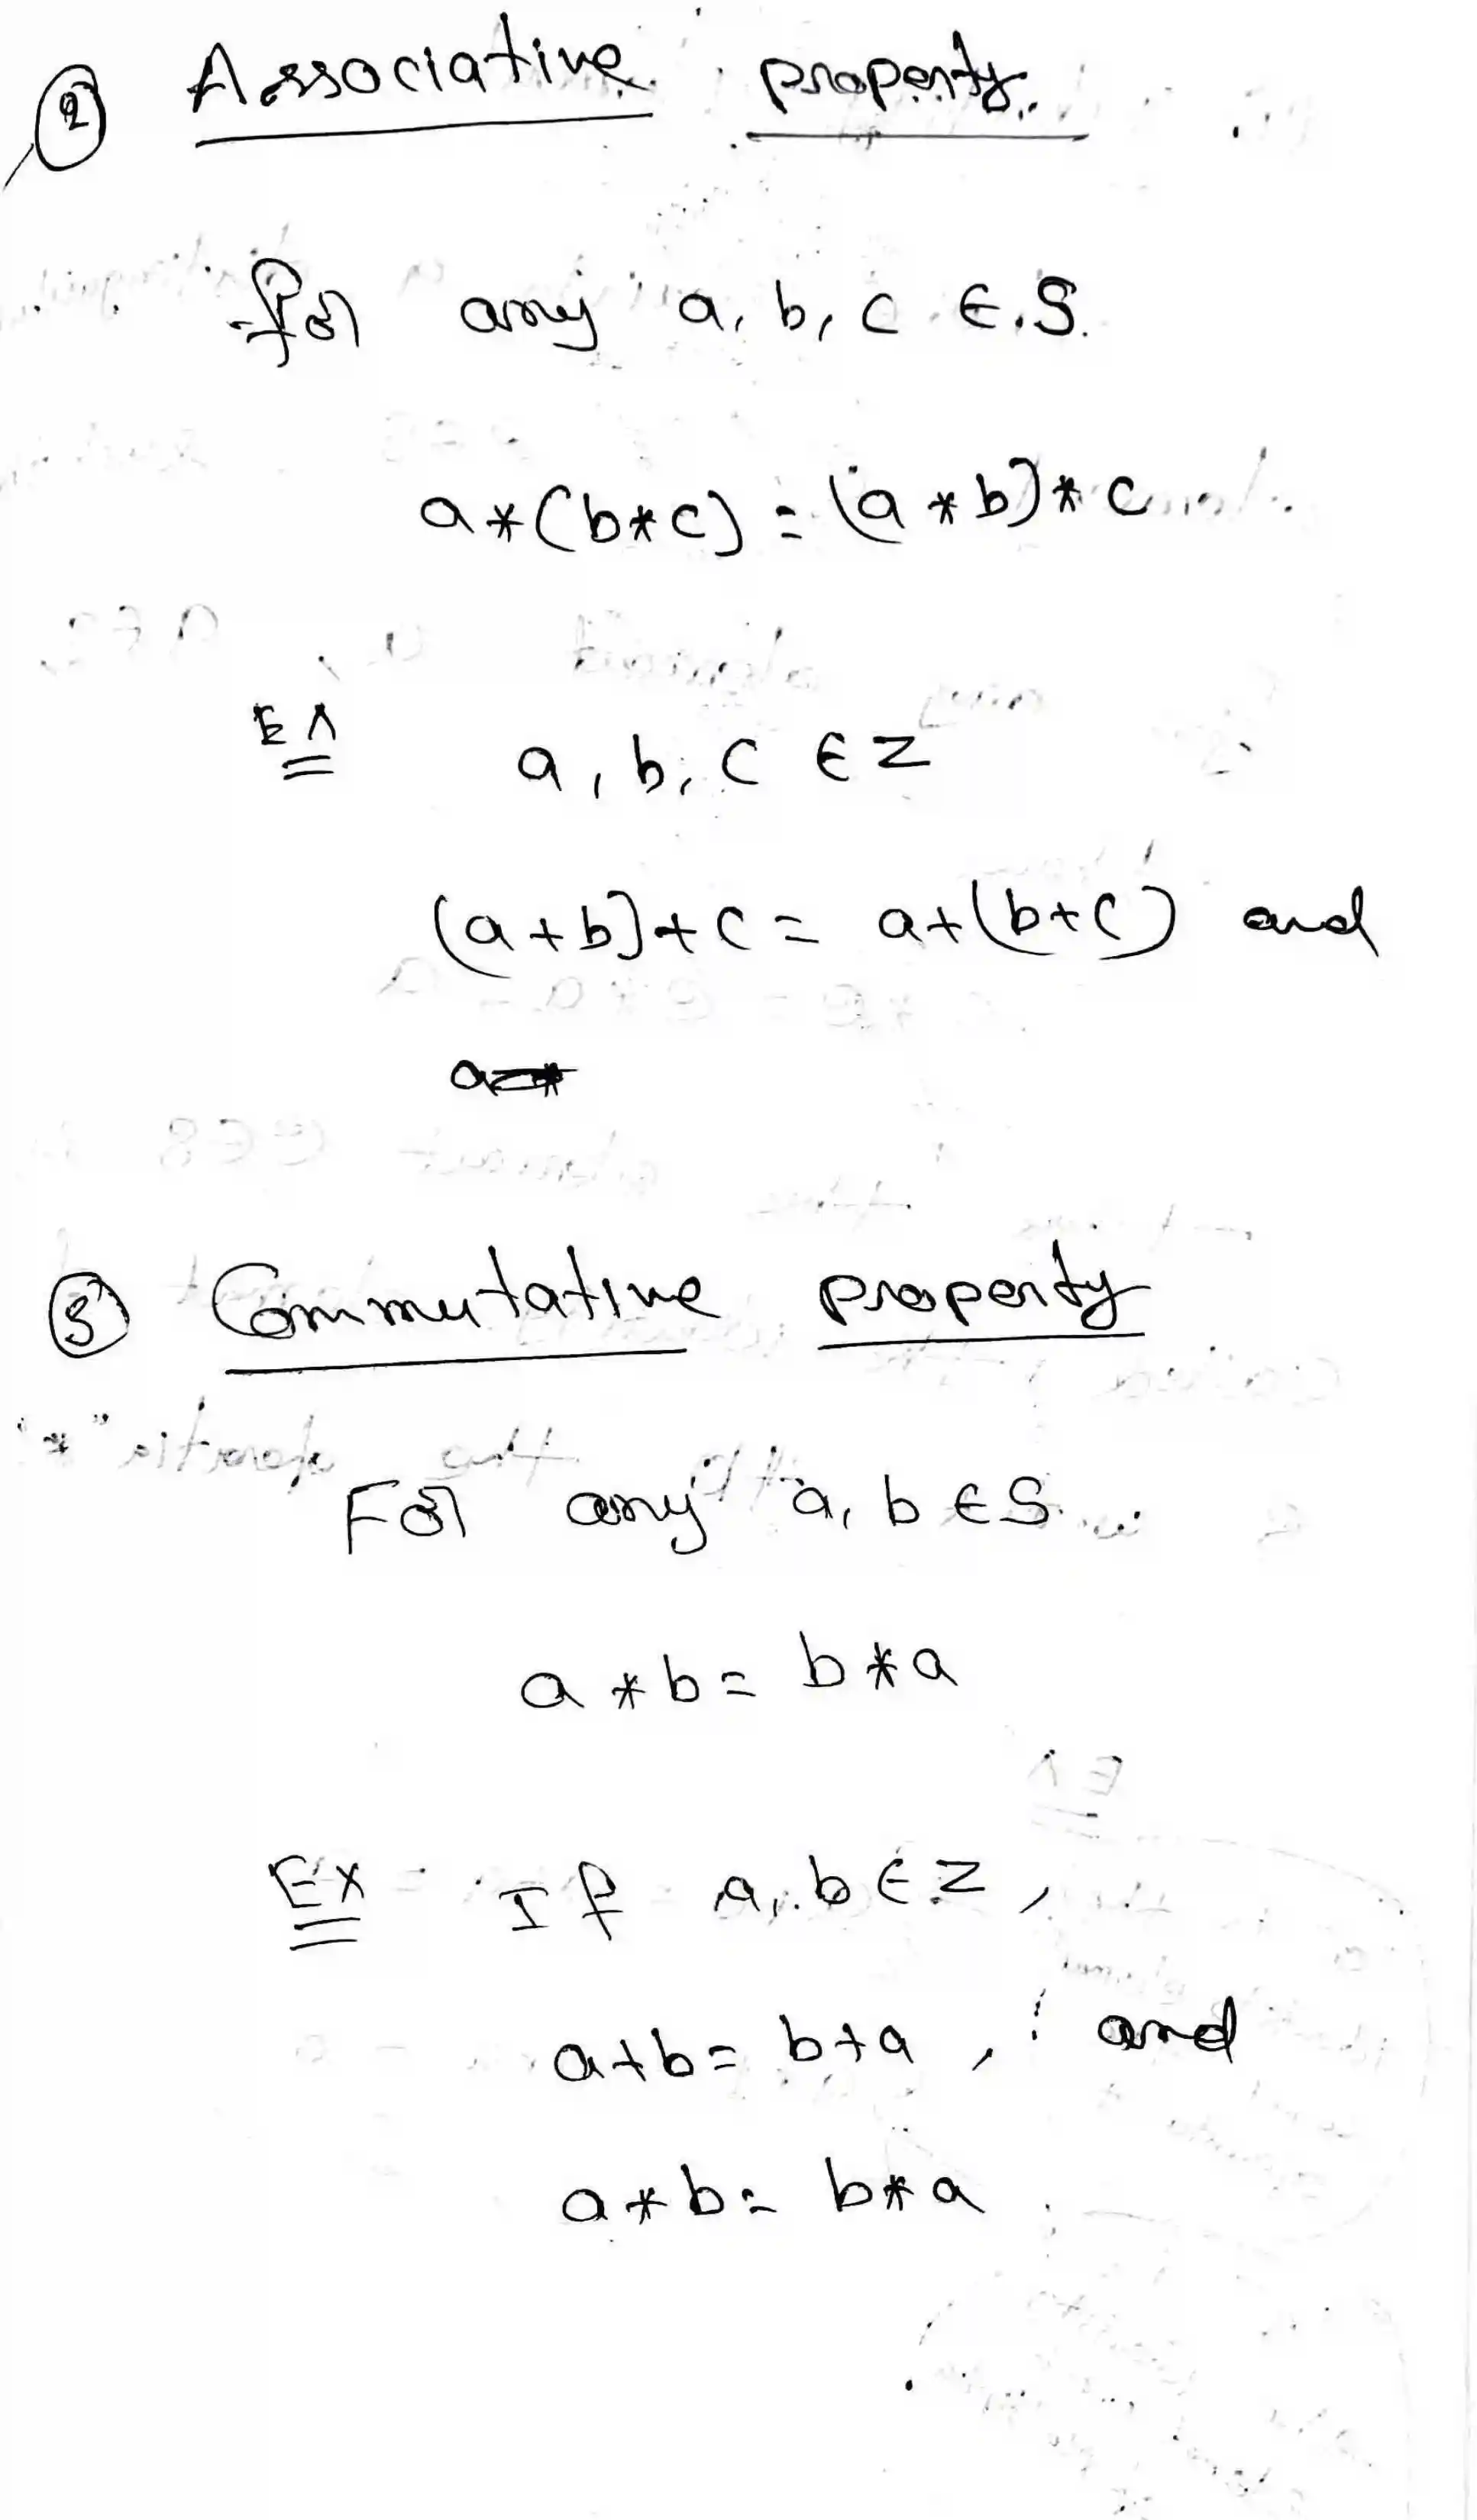 ② Associative property.
for any a, b, c ∈ S.
a*(b*c) = (a*b)*c
Ex a, b, c ∈ Z
(a+b)+c = a+(b+c) and
③ Commutative property
For any a, b ∈ S
a*b = b*a
Ex If a, b ∈ Z,
a+b = b+a, and
a*b = b*a